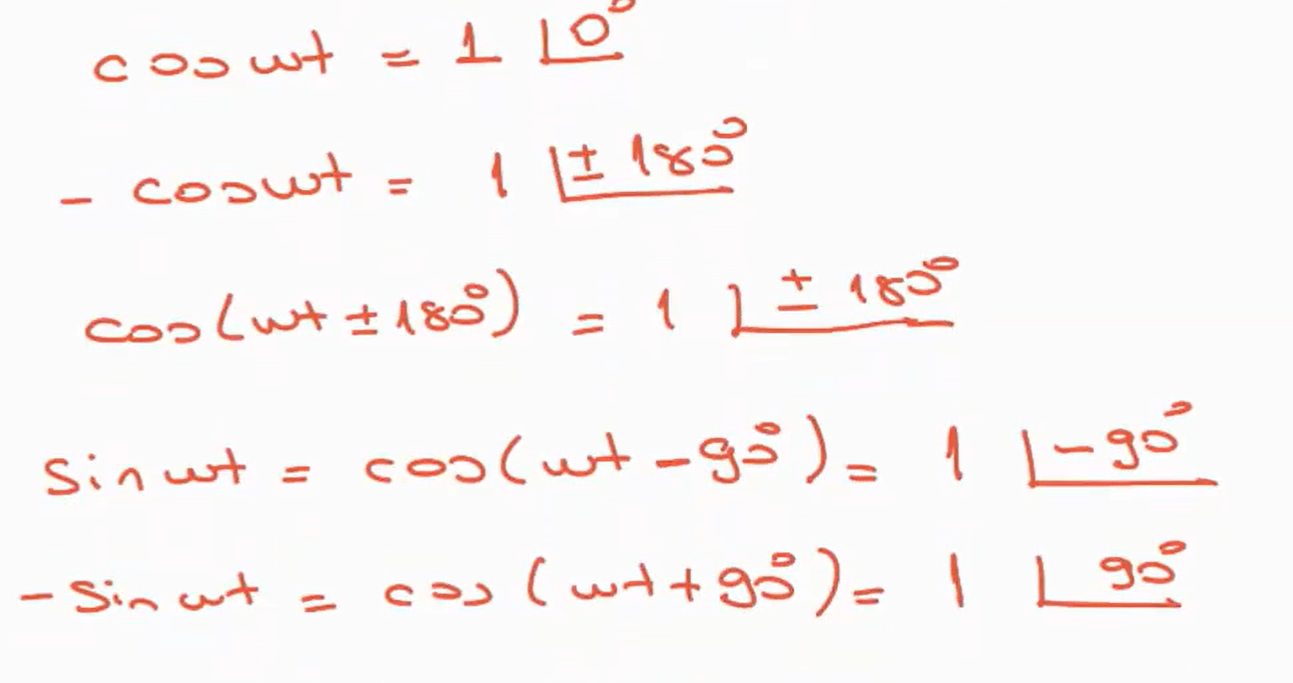 cos wt = 1 ∠0°
- cos wt = 1 ∠± 180°
cos(wt ± 180°) = 1 ∠± 180°
sin wt = cos(wt - 90°) = 1 ∠-90°
- sin wt = cos(wt + 90°) = 1 ∠90°